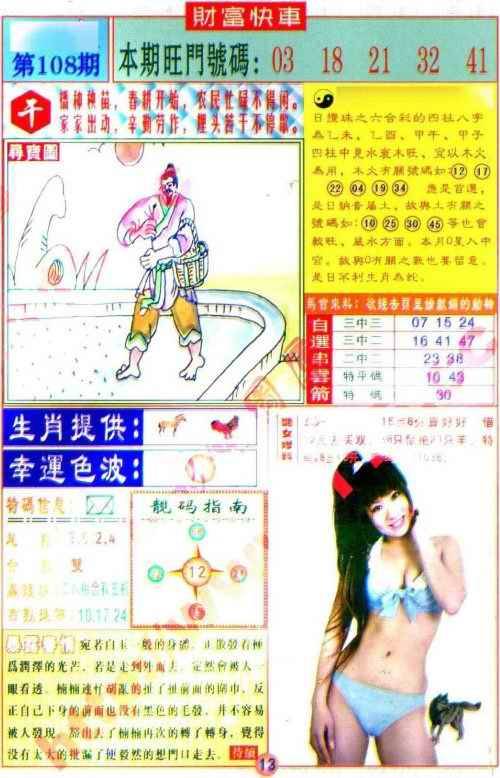 財富快車
第108期
本期旺門號碼: 03 18 21 32 41
干
播种秧苗，春耕开始，农民忙碌不得闲。
家家出动，辛勤劳作，埋头苦干不得歇。
尋寶圖
日攪珠之六合彩的四柱八字
為乙未、乙酉、甲午、甲子
四柱中見水衰木旺、宜以木火
為用，木火有關號碼如:12 17
22 04 19 34 應是首選，
是日納音屬土，故與土有關之
號碼如:10 25 30 45等也會
較旺，風水方面，本月0星入中
宮，故與0有關之數也要留意，
是日不利生肖為蛇。
自選串雲箭
三中三 07 15 24
三中二 16 41 47
二中二 23 38
特平碼 10 43
特碼 30
生肖提供:
幸運色波:
特碼信息:
靚码指南
雙
12
10.17.24
宛若白玉一般的身軀，正散發着極
爲潤澤的光芒，若是走到外面去，定然會被人一
眼看透。楠楠連忙胡亂的扯了扯前面的圍巾，反
正自己下身的前面也没有黑色的毛發，并不容易
被人發現，豁出去了楠楠再次的轉了轉身，覺得
没有太大的紕漏了便毅然的想門口走去。待續
13